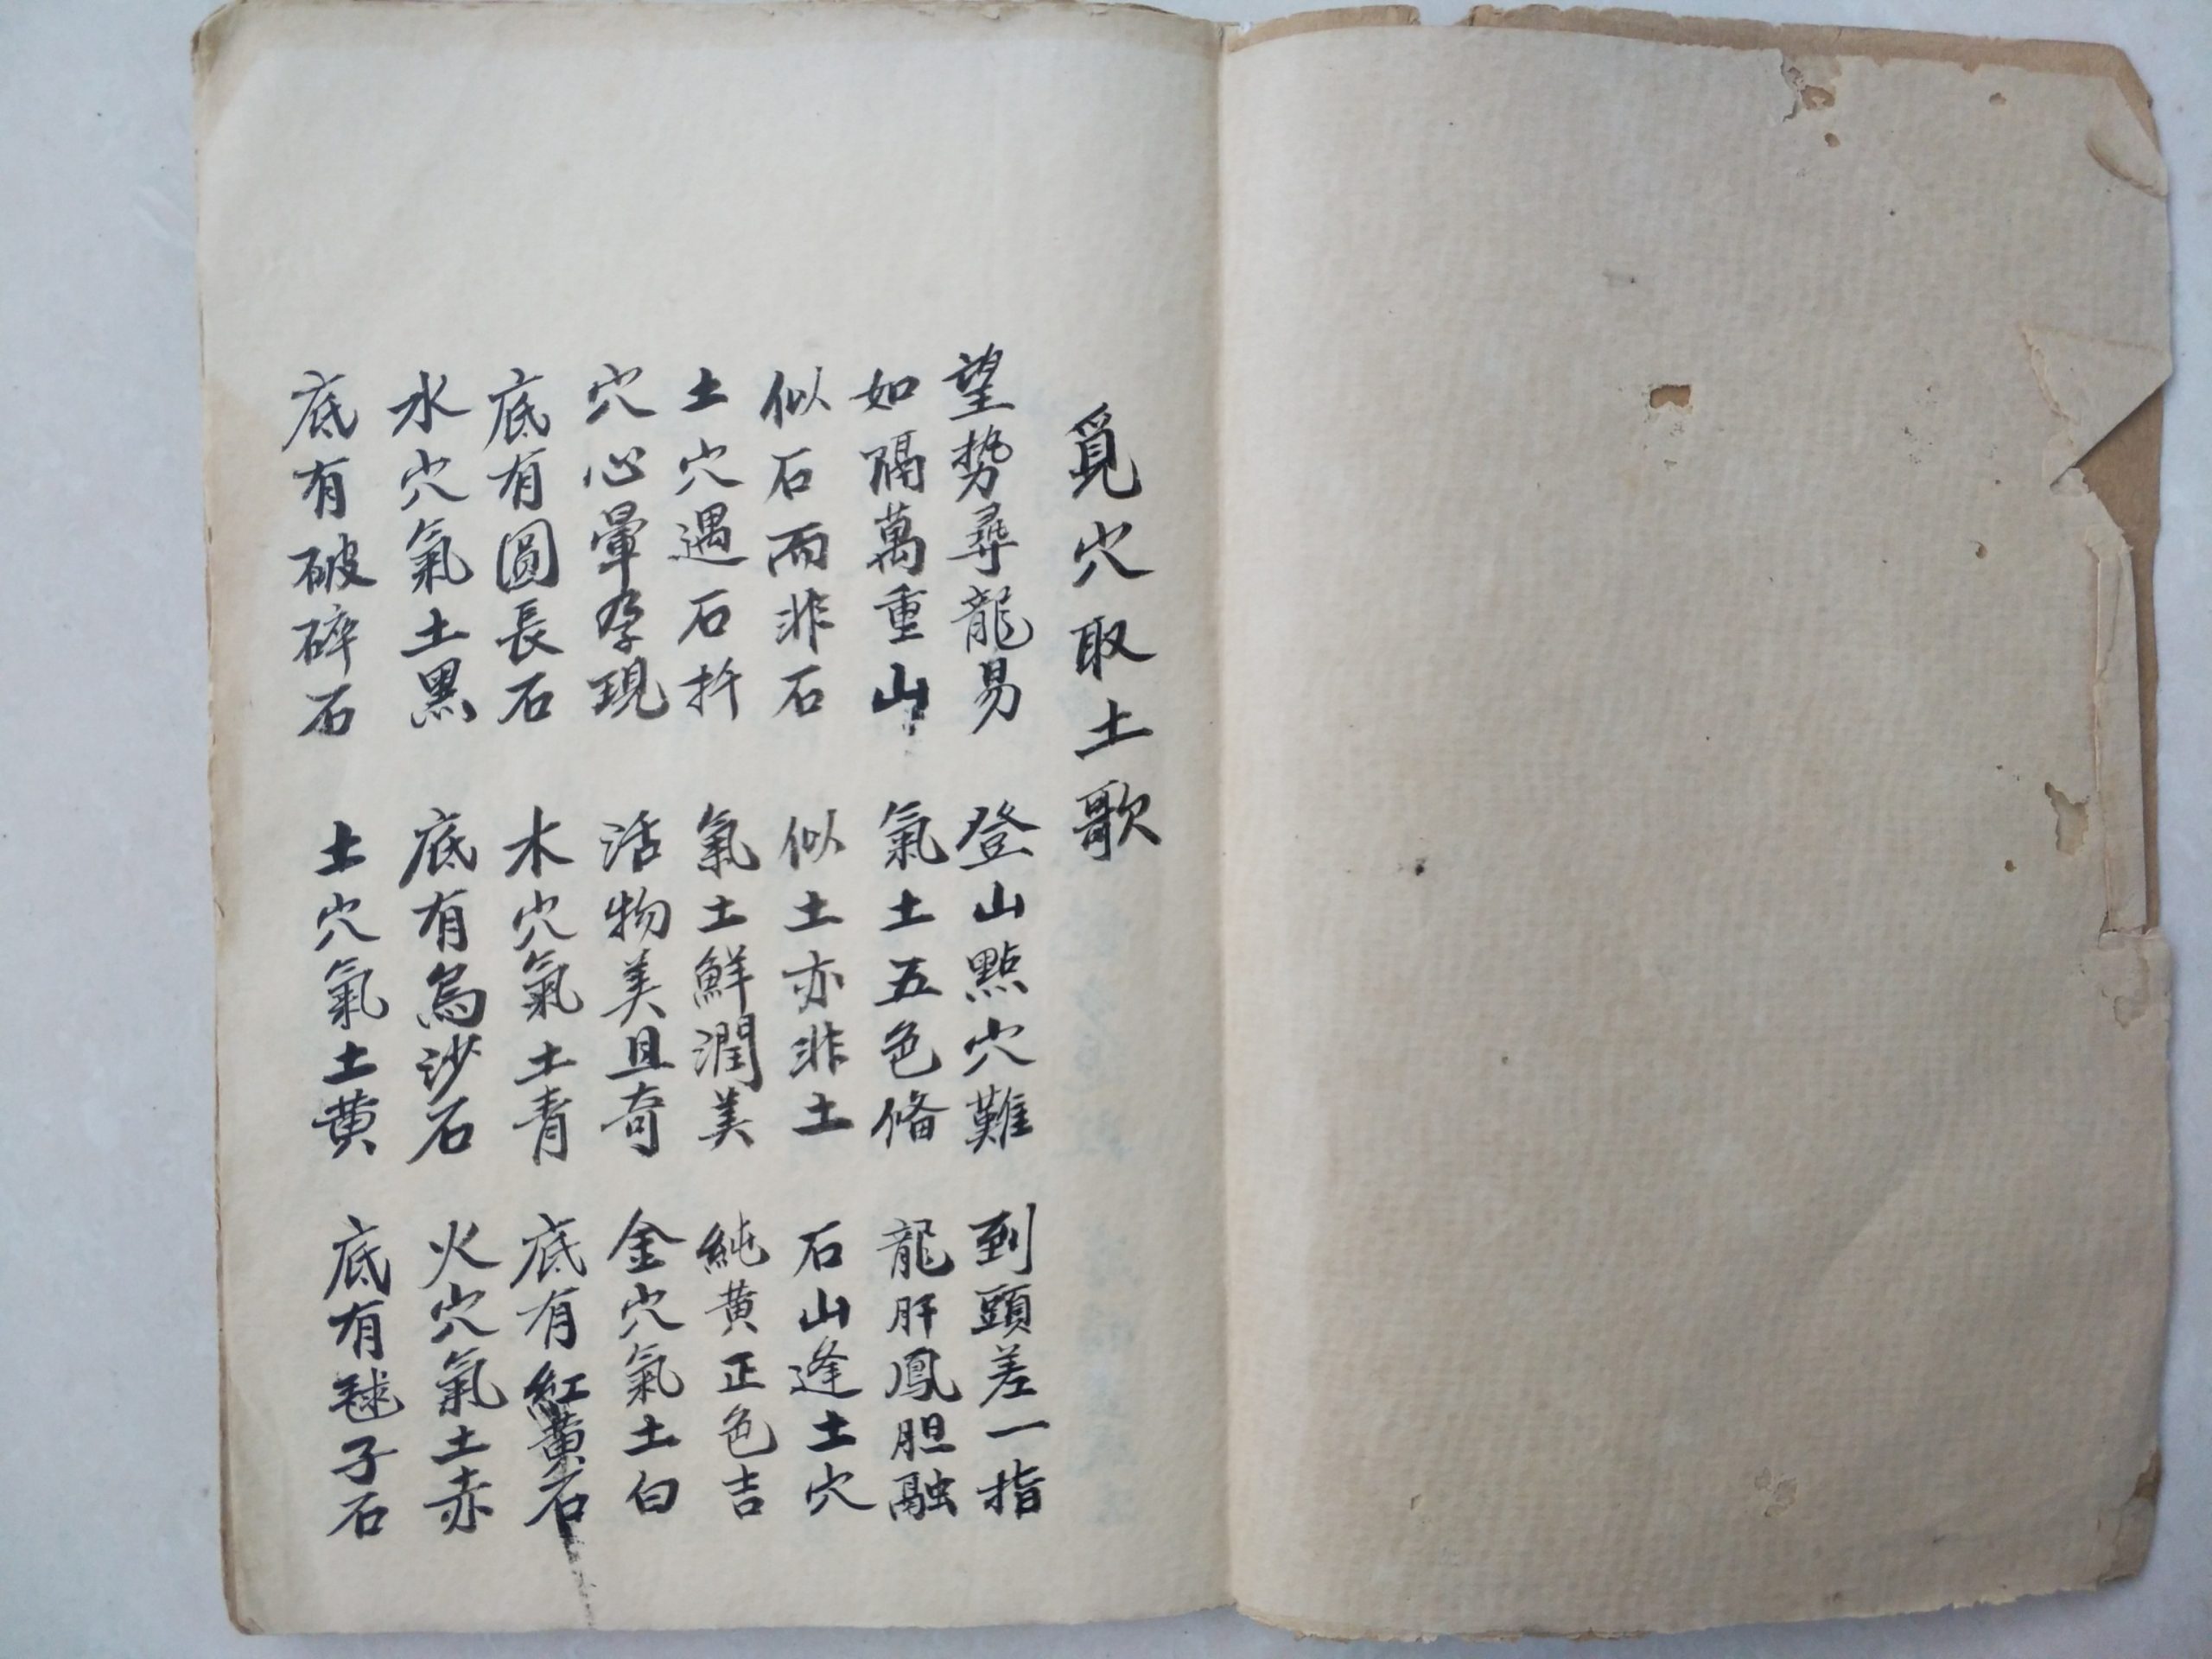 覓穴取土歌
望勢尋龍易 登山點穴難 到頭差一指
如隔萬重山 氣土五色俻 龍肝鳳胆融
似石而非石 似土亦非土 石山逢土穴
土穴遇石扦 氣土鮮潤美 純黃正色吉
穴心暈孕現 活物美且奇 金穴氣土白
底有圓長石 木穴氣土青 底有紅黃石
水穴氣土黑 底有烏沙石 火穴氣土赤
底有破碎石 土穴氣土黃 底有毬子石